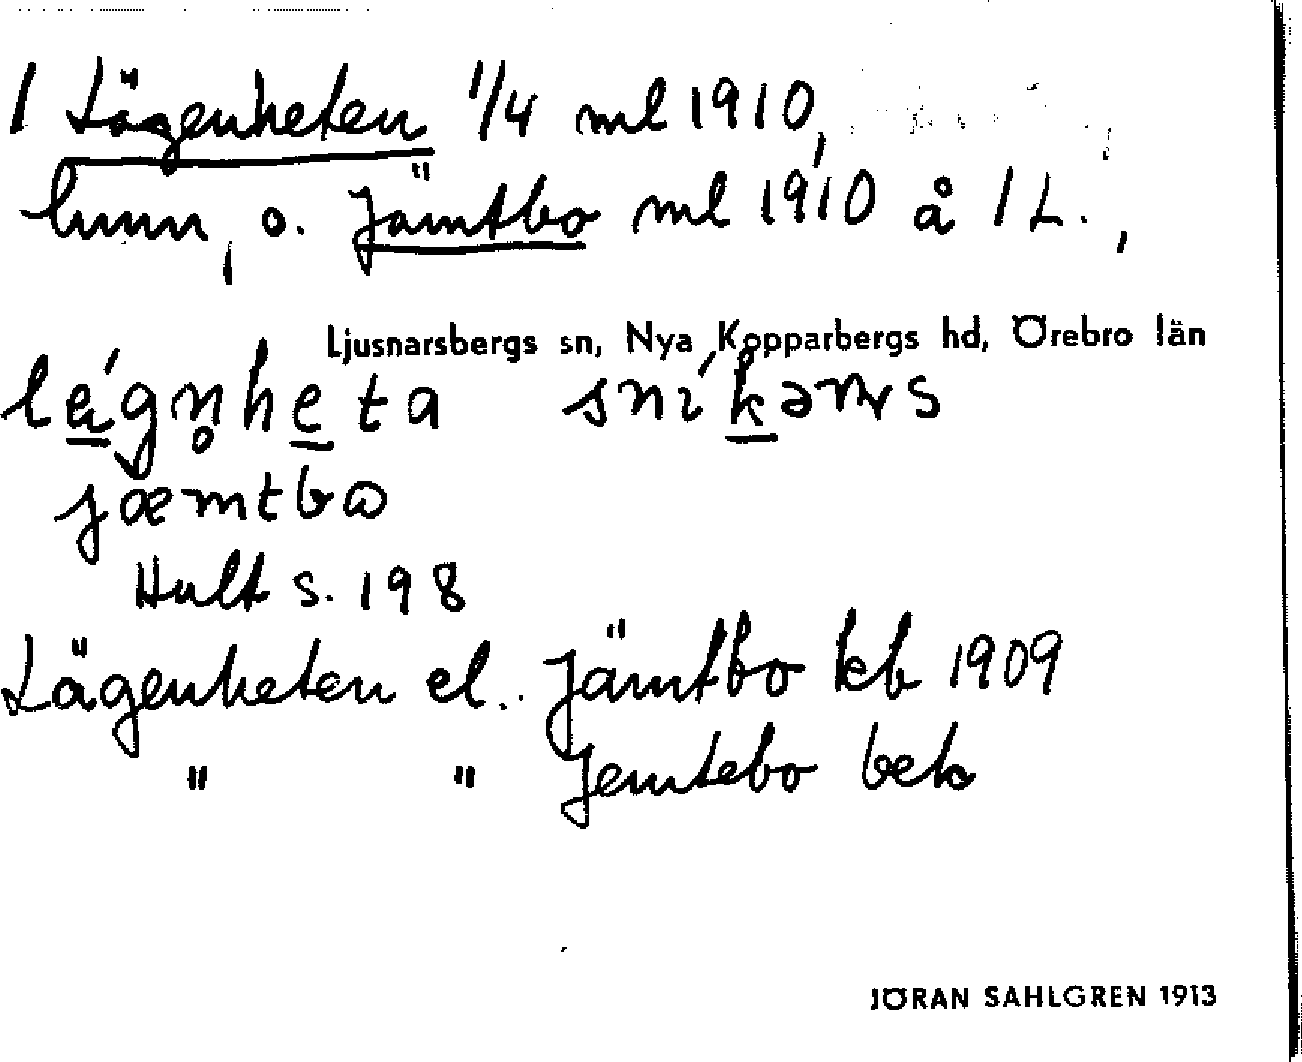 1 Lägenheten 1/4 ml 1910,
hmn, o. Jämtbo ml 1910 å 1 L.,
Ljusnarsbergs sn, Nya Kopparbergs hd, Örebro län
jæmtbω
Hult s. 198
Lägenheten el. Jämtbo kb 1909
" " Jemtebo bek
JÖRAN SAHLGREN 1913